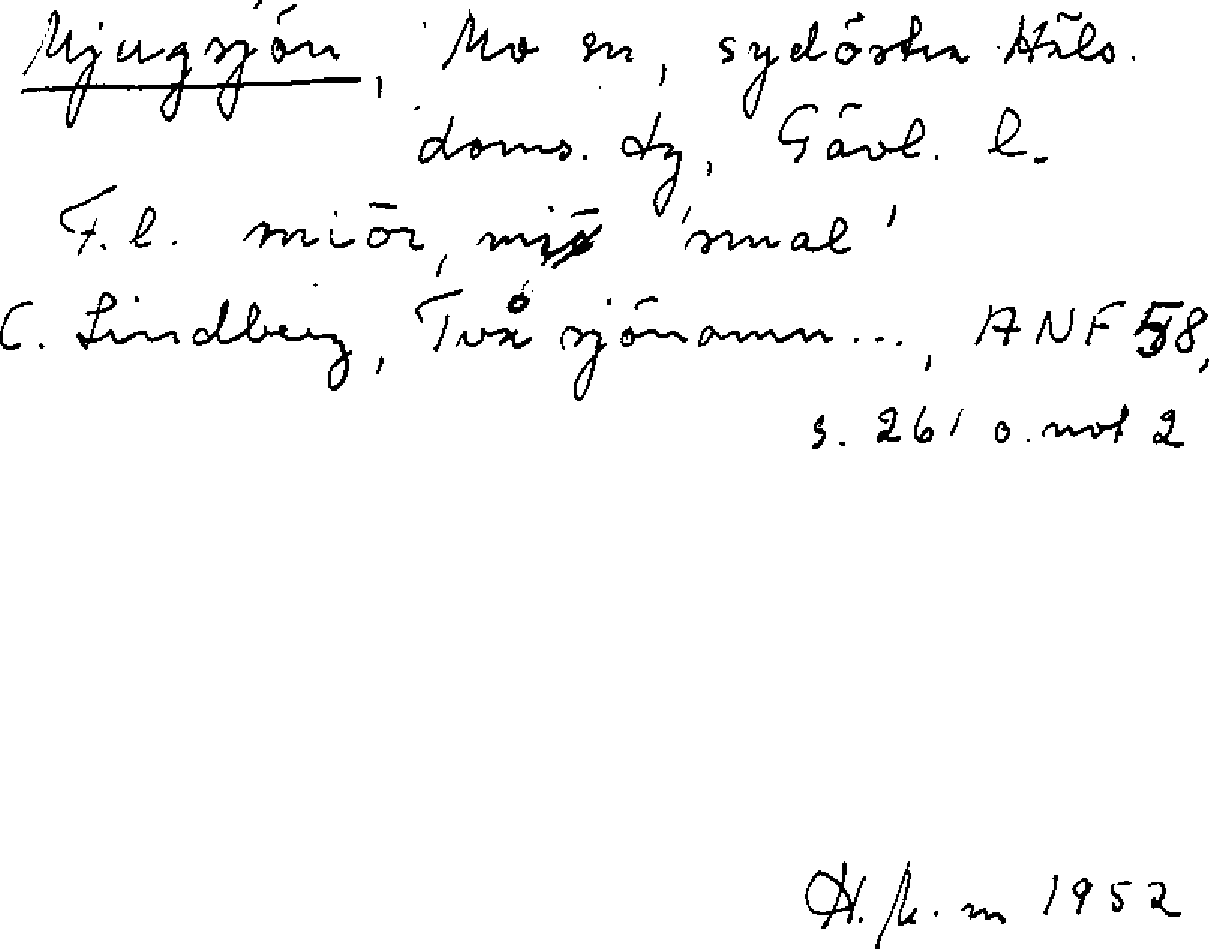 Mjugsjön, Mo sn, sydöstra Häls.
doms. tg, Gävl. l.
F.l. miör, mi 'smal'
C. Lindberg, Två sjönamn..., ANF 58,
s. 261 o. not 2
H. m 1952